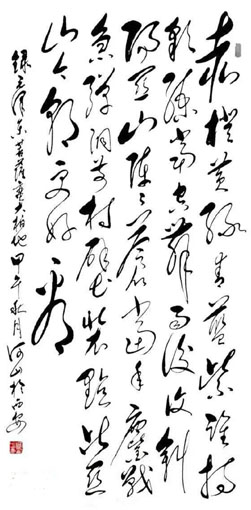 赤橙黄绿青藍紫谁持
彩练当空舞雨后复斜
阳关山阵阵苍当年鏖战
急弹洞前村壁装点此关
山今朝更好看
录毛泽东菩萨蛮大柏地甲午秋月河山於西安